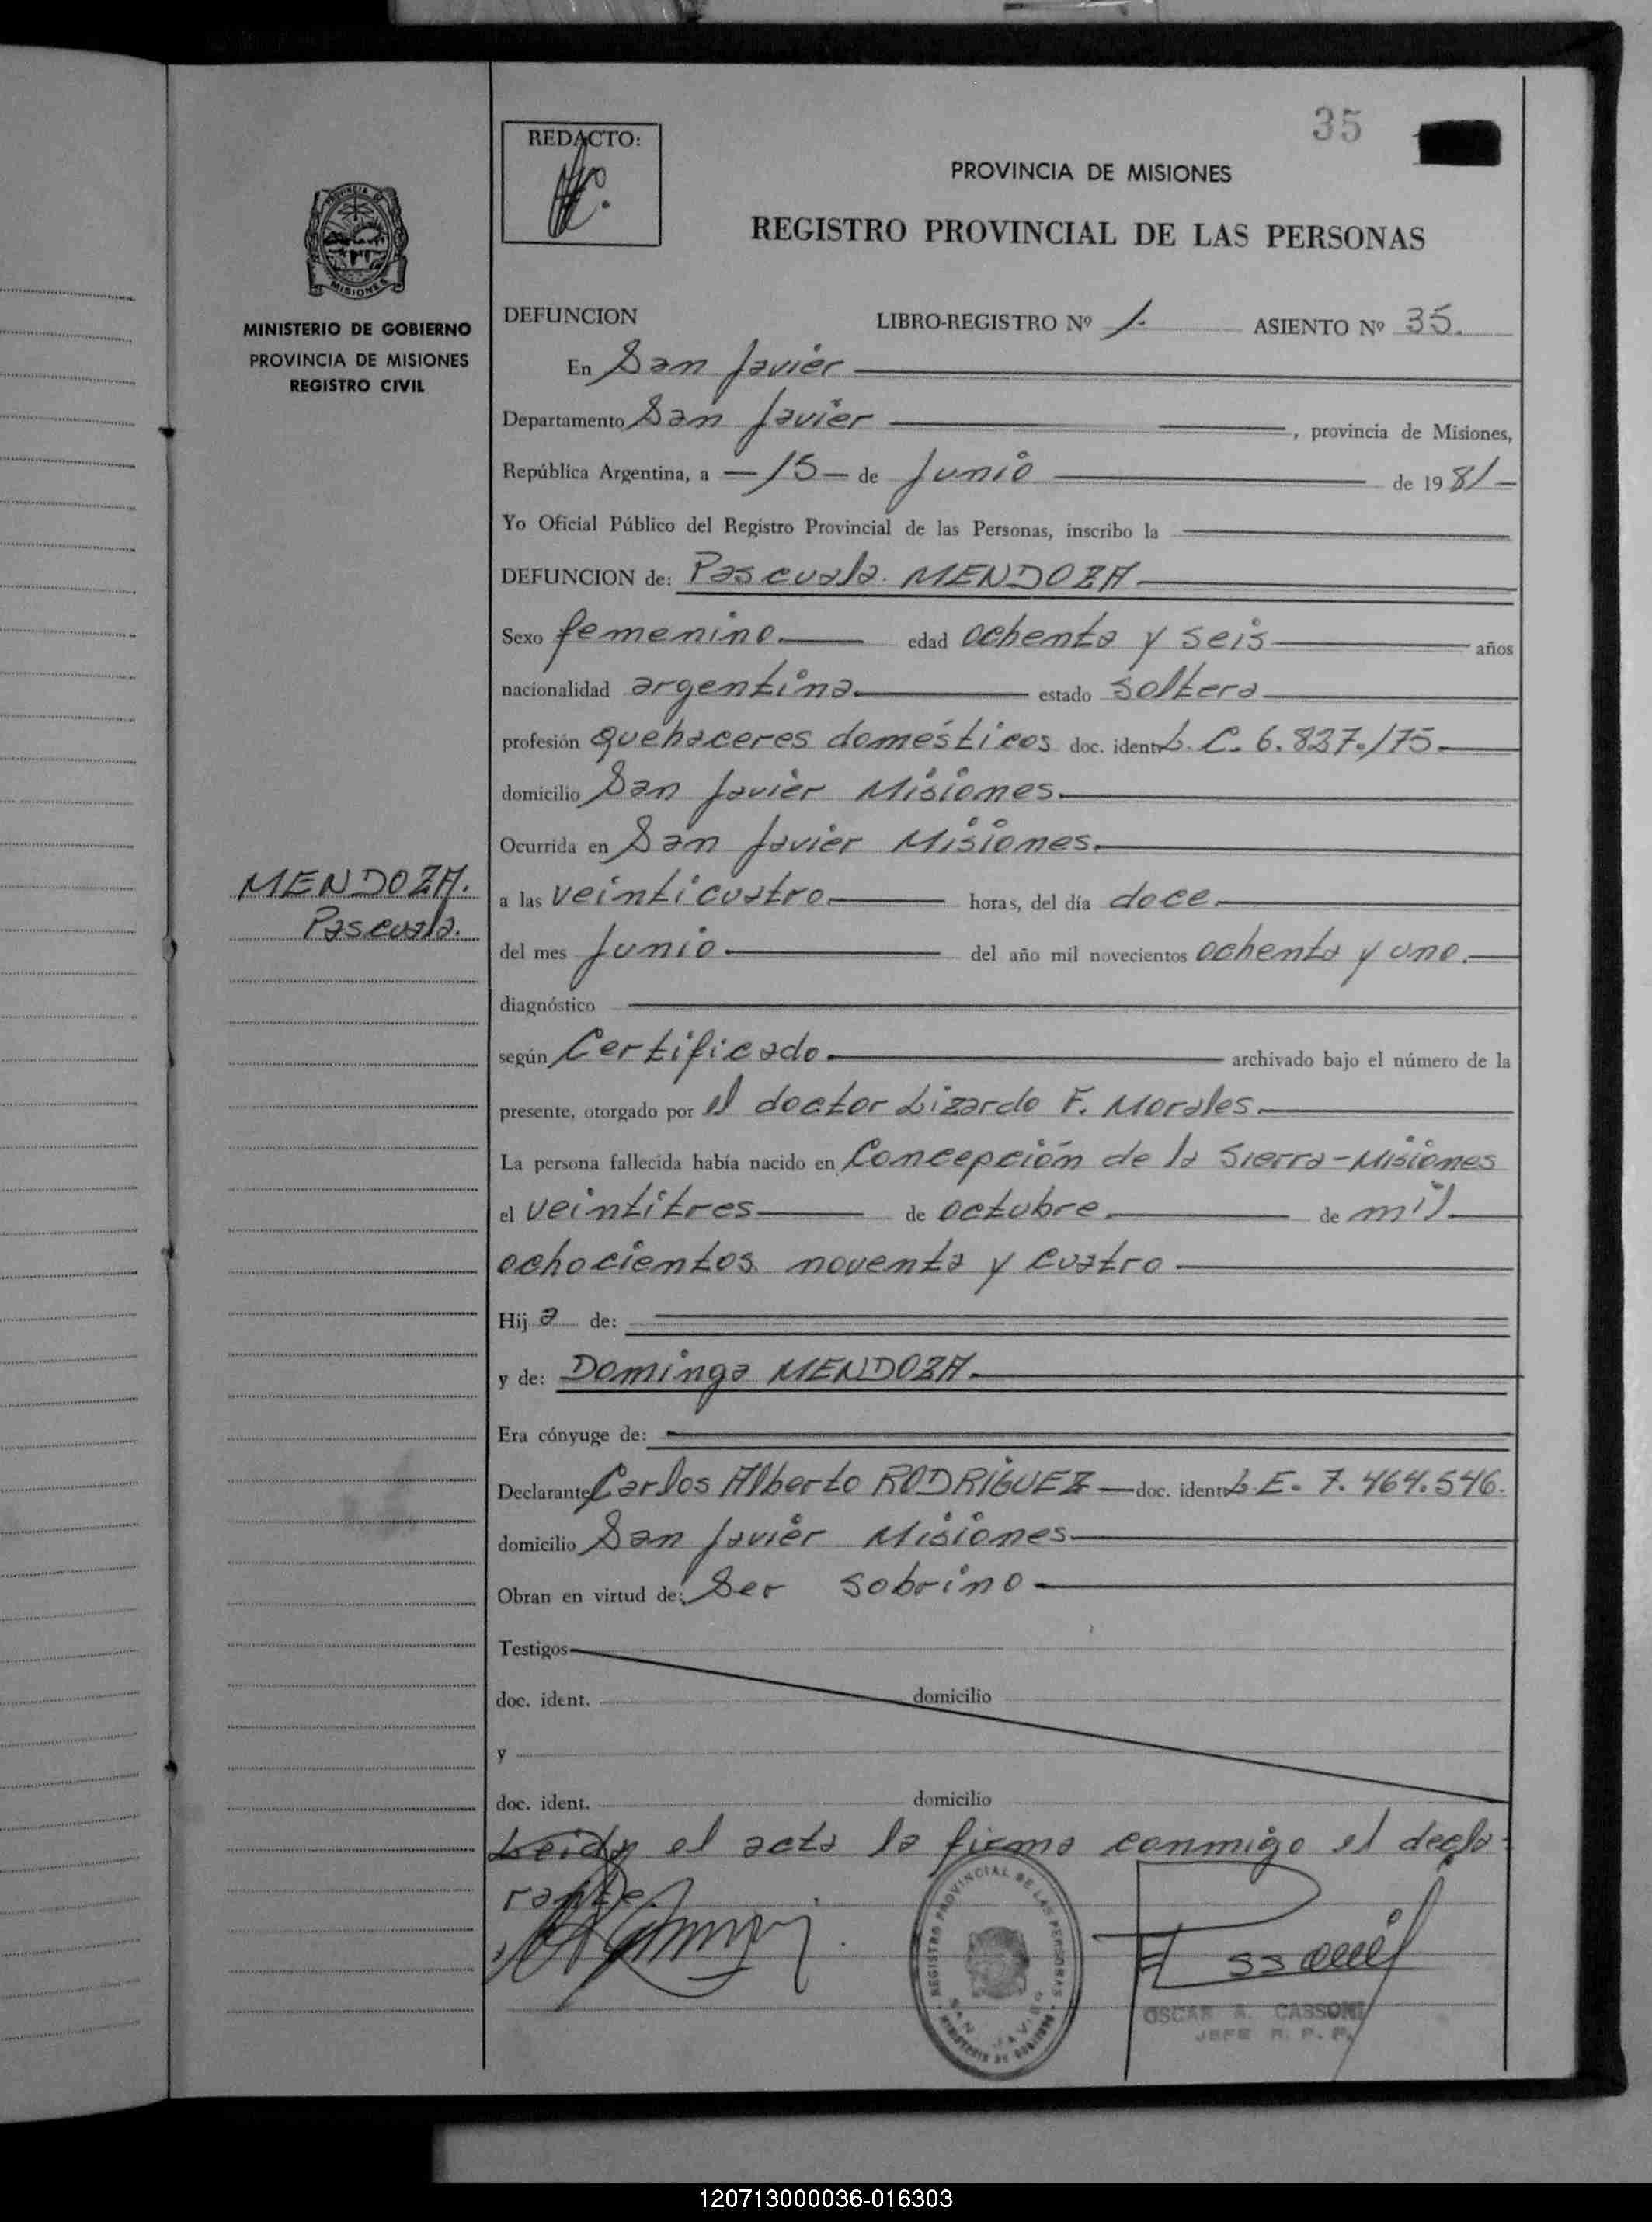 35
REDACTO:
PROVINCIA DE MISIONES
REGISTRO PROVINCIAL DE LAS PERSONAS
PROVINCIA DE
MISIONES
MINISTERIO DE GOBIERNO
PROVINCIA DE MISIONES
REGISTRO CIVIL
DEFUNCION LIBRO-REGISTRO Nº 1. ASIENTO Nº 35.
En San Javier
Departamento San Javier, provincia de Misiones,
República Argentina, a -15- de Junio de 1981-
Yo Oficial Público del Registro Provincial de las Personas, inscribo la
DEFUNCION de: Pascuala MENDOZA
Sexo femenino. edad ochenta y seis años
nacionalidad argentina. estado soltera
profesión quehaceres domésticos doc. ident. L. C. 6.837.175.
domicilio San Javier Misiones.
Ocurrida en San Javier Misiones.
MENDOZA.
Pascuala.
a las veinticuatro. horas, del día doce.
del mes Junio. del año mil novecientos ochenta y uno.
diagnóstico
según Certificado. archivado bajo el número de la
presente, otorgado por el doctor Lizardo F. Morales.
La persona fallecida había nacido en Concepción de la Sierra-Misiones
el veintitres de octubre. de mil
ochocientos noventa y cuatro
Hij a de:
y de: Dominga MENDOZA.
Era cónyuge de:
Declarante Carlos Alberto RODRIGUEZ doc. ident. L. E. 7.464.546.
domicilio San Javier Misiones
Obran en virtud de: Ser sobrino
Testigos
doc. ident. domicilio
y
doc. ident. domicilio
Leida el acta la firma conmigo el decla-
rante.
REGISTRO PROVINCIAL DE LAS PERSONAS
SAN JAVIER
MINISTERIO DE GOBIERNO
OSCAR A. CASSONI
JEFE R. P. P.
120713000036-016303